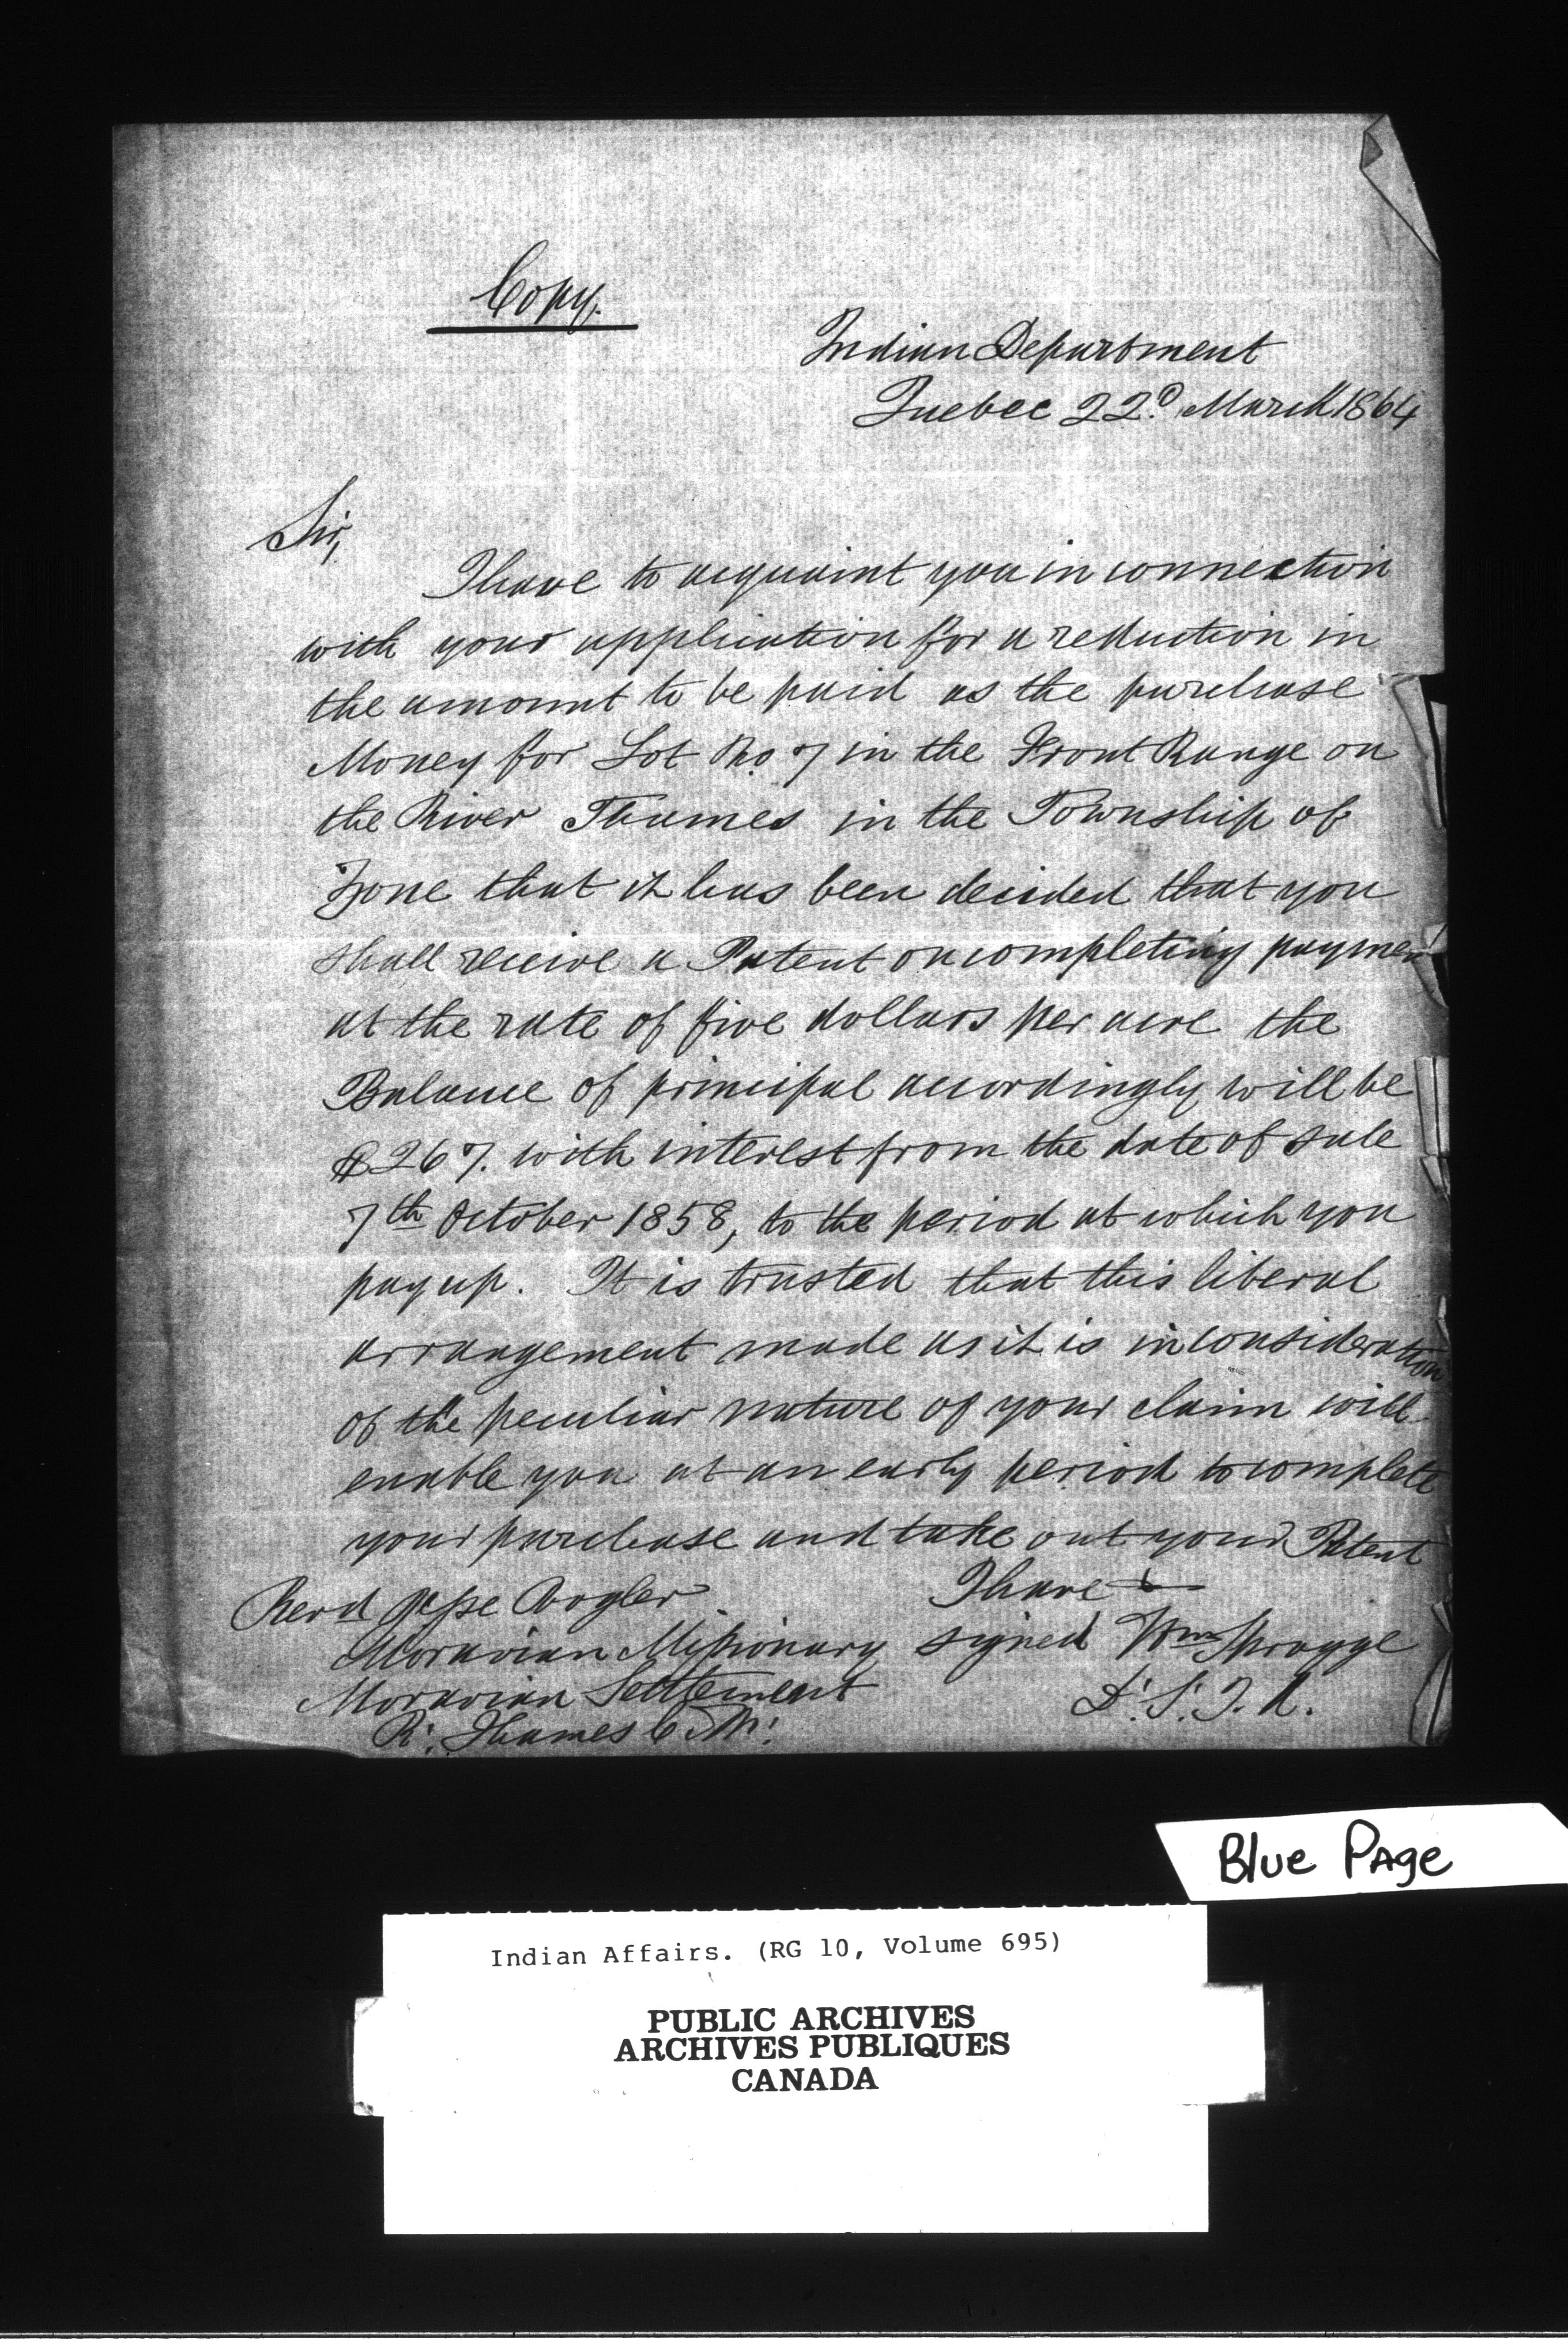 Copy.
Indian Department
Quebec 22d. March 1864
Sir,
I have to acquaint you in connection
with your application for a reduction in
the amount to be paid as the purchase
Money for Lot No 7 in the Front Range on
the River Thames in the Township of
Zone that it has been decided that you
shall receive a Patent on completing paymen
at the rate of five dollars per acre the
Balance of principal accordingly will be
$267. with interest from the date of sale
7th October 1858, to the period at which you
pay up. It is trusted that this liberal
arrangement made as it is in consideration
of the peculiar nature of your claim will
enable you at an early period to complete
your purchase and take out your Patent
I have
Revd Jesse Vogler
Moravian Missionary signed Wm Spragge
Moravian Settlement D. S. I. A.
R. Thames C. W.
Blue Page
Indian Affairs. (RG 10, Volume 695)
PUBLIC ARCHIVES
ARCHIVES PUBLIQUES
CANADA